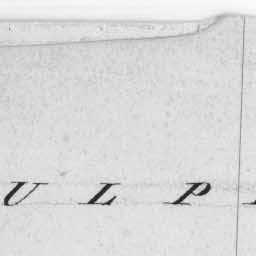 U L P